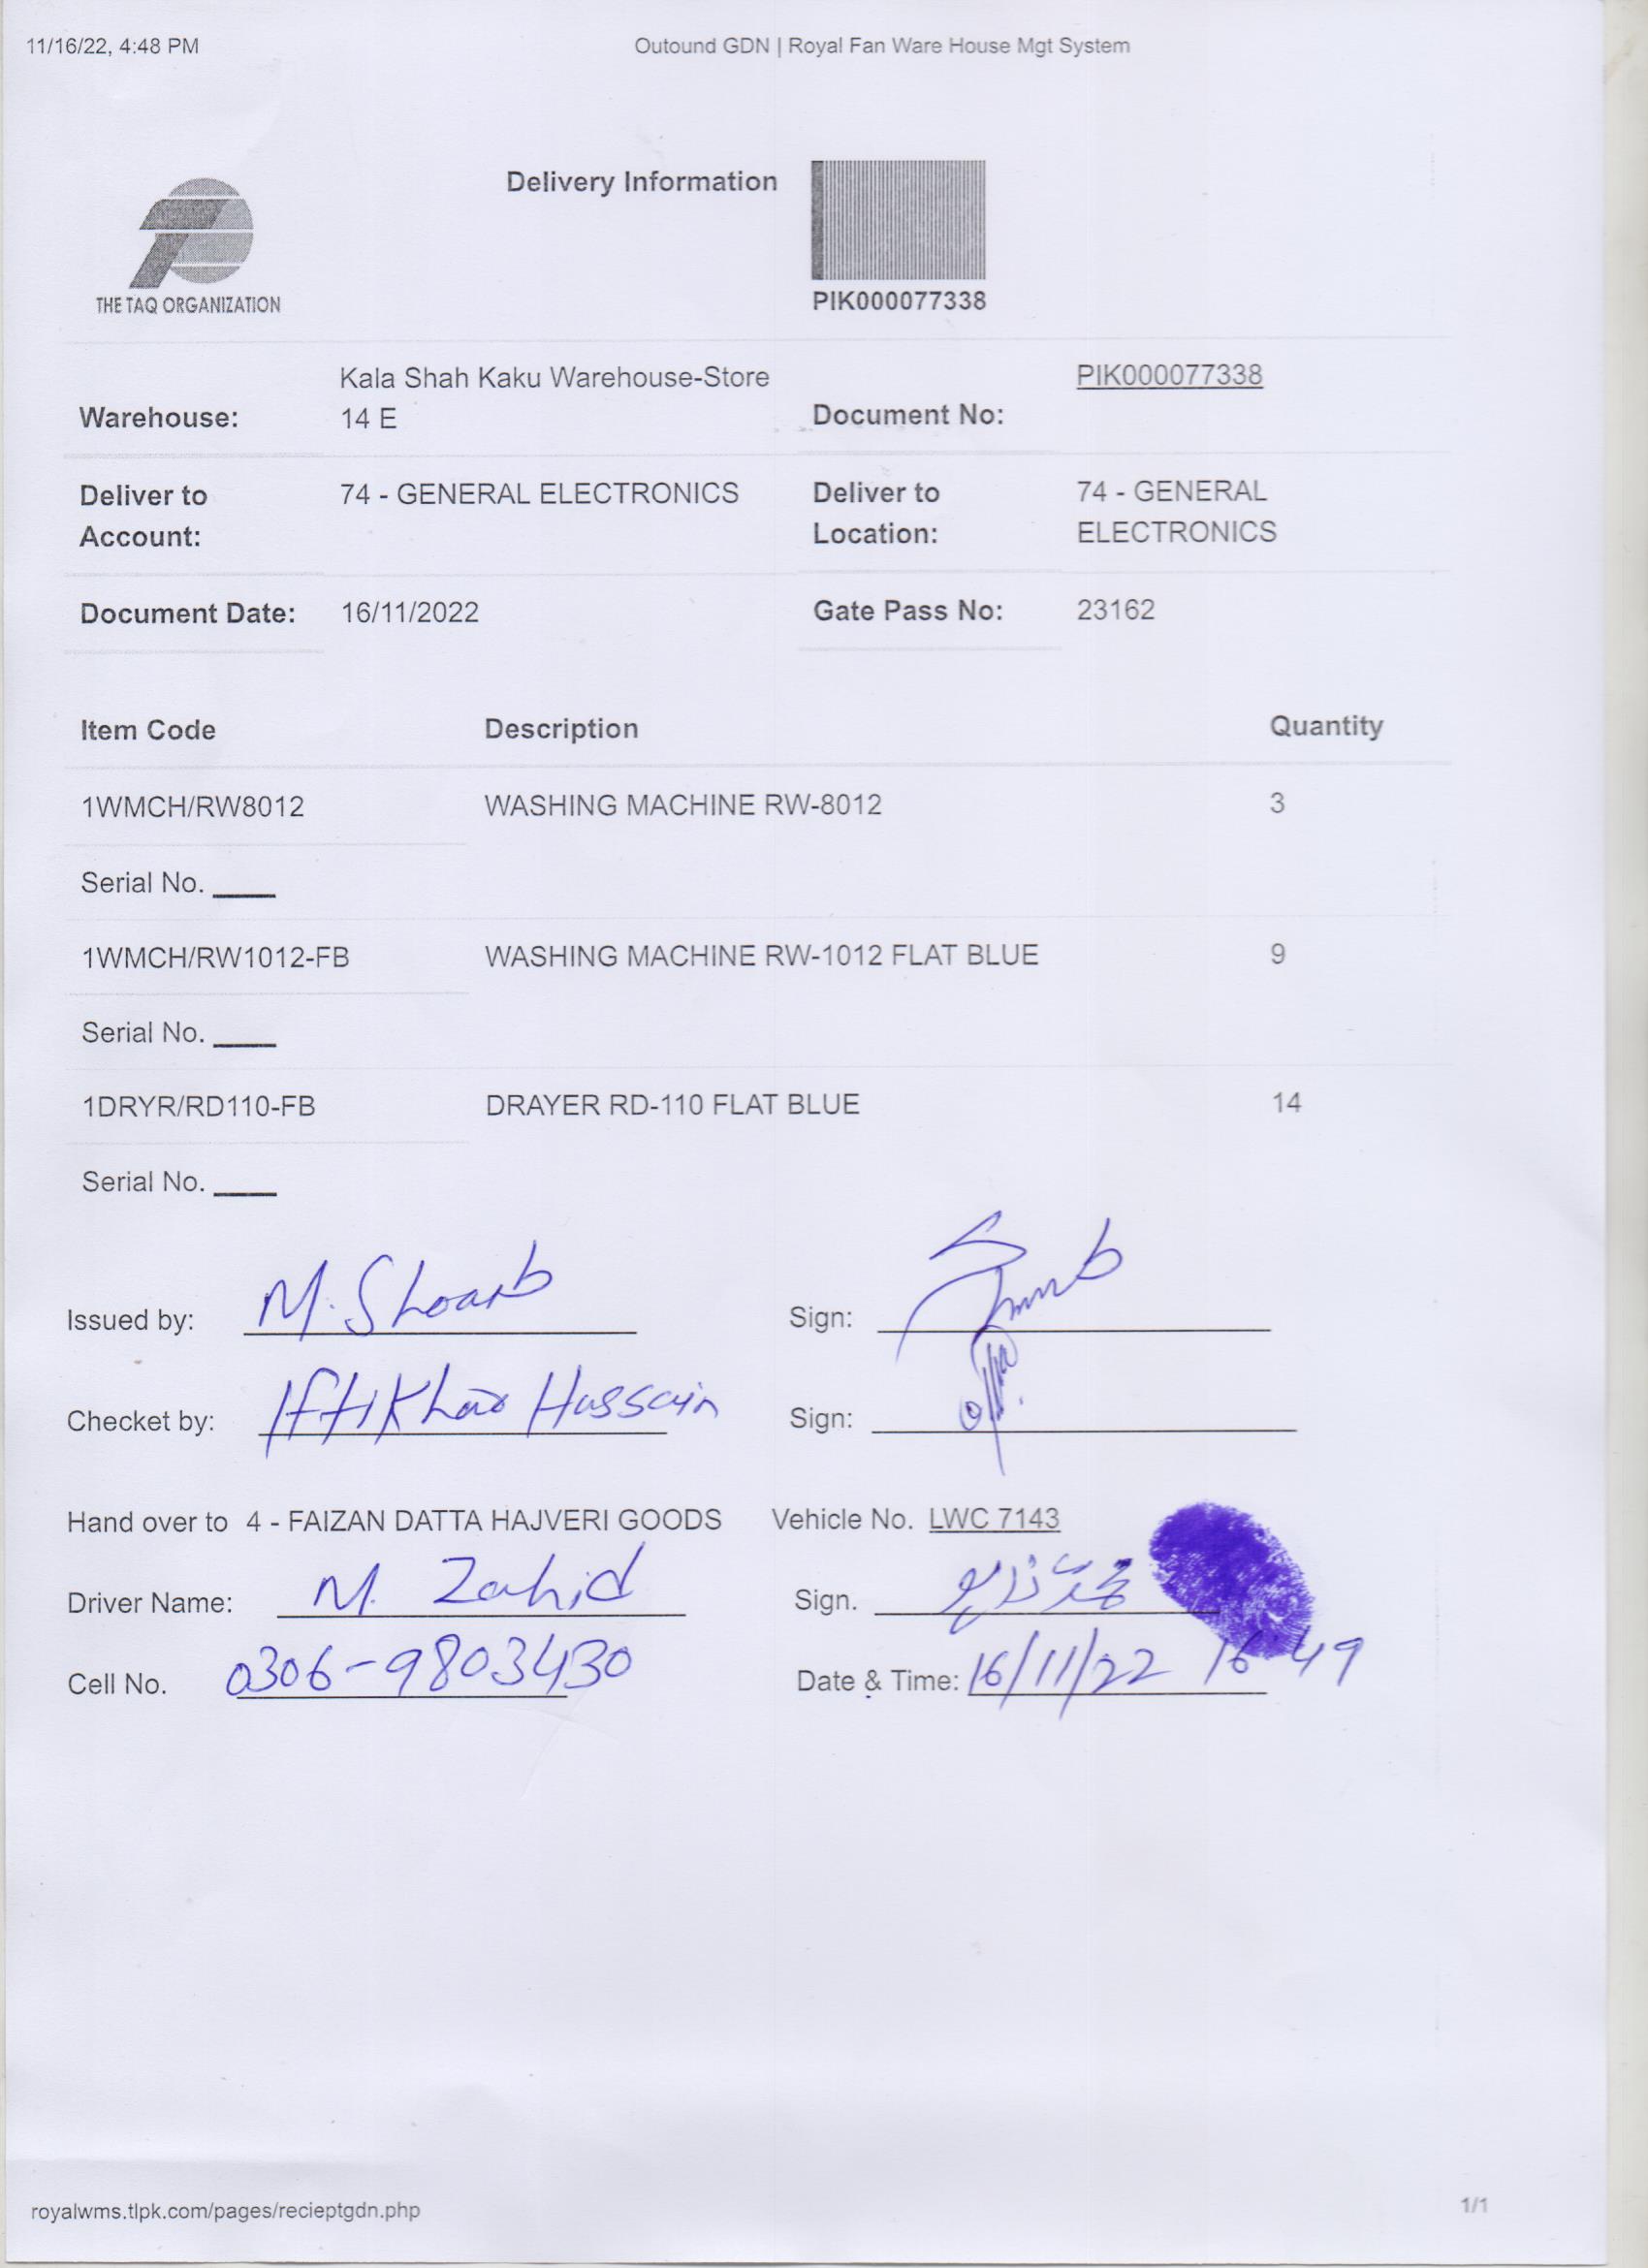 11/16/22, 4:48 PM Outound GDN | Royal Fan Ware House Mgt System
Delivery Information
THE TAQ ORGANIZATION
PIK000077338
Warehouse: Kala Shah Kaku Warehouse-Store 14 E Document No: PIK000077338
Deliver to Account: 74 - GENERAL ELECTRONICS Deliver to Location: 74 - GENERAL ELECTRONICS
Document Date: 16/11/2022 Gate Pass No: 23162
Item Code Description Quantity
1WMCH/RW8012 WASHING MACHINE RW-8012 3
Serial No. ____
1WMCH/RW1012-FB WASHING MACHINE RW-1012 FLAT BLUE 9
Serial No. ____
1DRYR/RD110-FB DRAYER RD-110 FLAT BLUE 14
Serial No. ____
Issued by: M. Shoaib Sign:
Checket by: Iftikhar Hussain Sign:
Hand over to 4 - FAIZAN DATTA HAJVERI GOODS Vehicle No. LWC 7143
Driver Name: M. Zahid Sign.
Cell No. 0306-9803430 Date & Time: 16/11/22 16 49
royalwms.tlpk.com/pages/recieptgdn.php 1/1